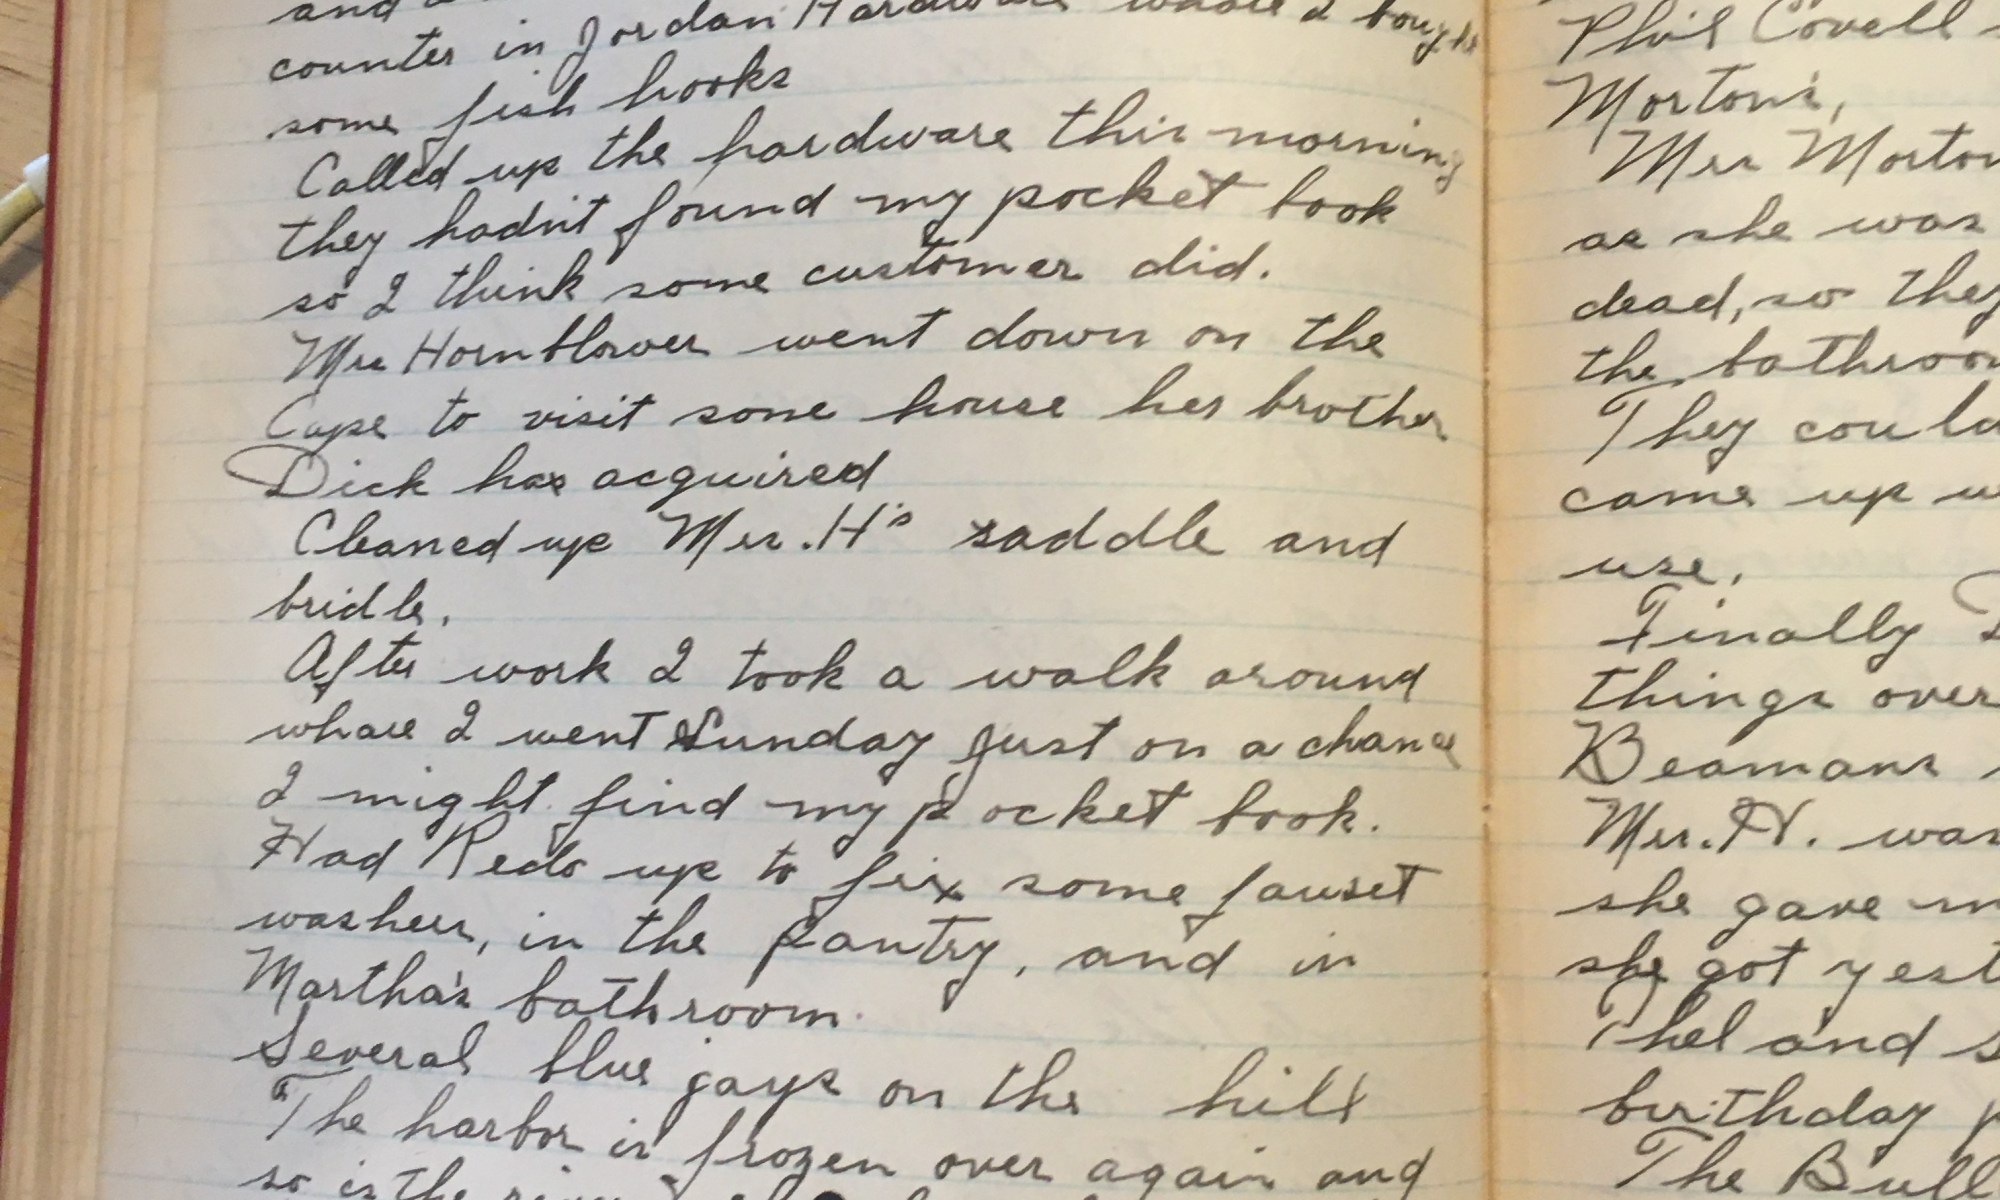 and a
counter in Jordan Hardware whare I bought
some fish hooks
Called up the hardware this morning
they hadn't found my pocket book
so I think some customer did.
Mrs Hornblower went down on the
Cape to visit some house her brother
Dick has acquired
Cleaned up Mrs. H's saddle and
bridle.
After work I took a walk around
whare I went Sunday just on a chance
I might find my pocket book.
Had Reds up to fix some fauset
washers, in the pantry, and in
Martha's bathroom.
Several blue jays on the hill
The harbor is frozen over again and
so is the
Phil Covell
Morton's,
Mrs Morton
as she was
dead, so they
the bathroom
They could
came up
use.
Finally
things over
Beamans
Mrs. H. was
she gave
she got
Thel and
birthday
The Bull